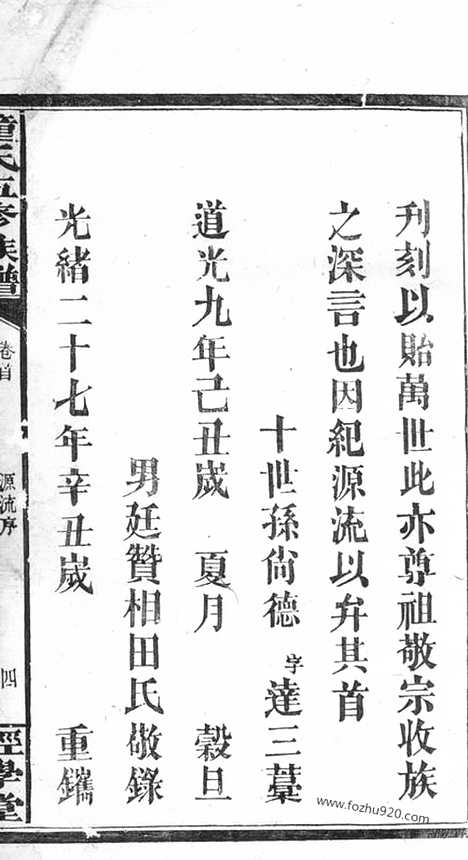 刋刻以貽萬世此亦尊祖敬宗收族
之深言也因紀源流以弁其首
十世孫尙德 字達三藁
道光九年己丑歲 夏月 穀旦
男廷贊相田氏敬錄
光緒二十七年辛丑歲 重鐫
童氏五修族譜 卷首 源流序 四 經學堂
www.fozhu920.com